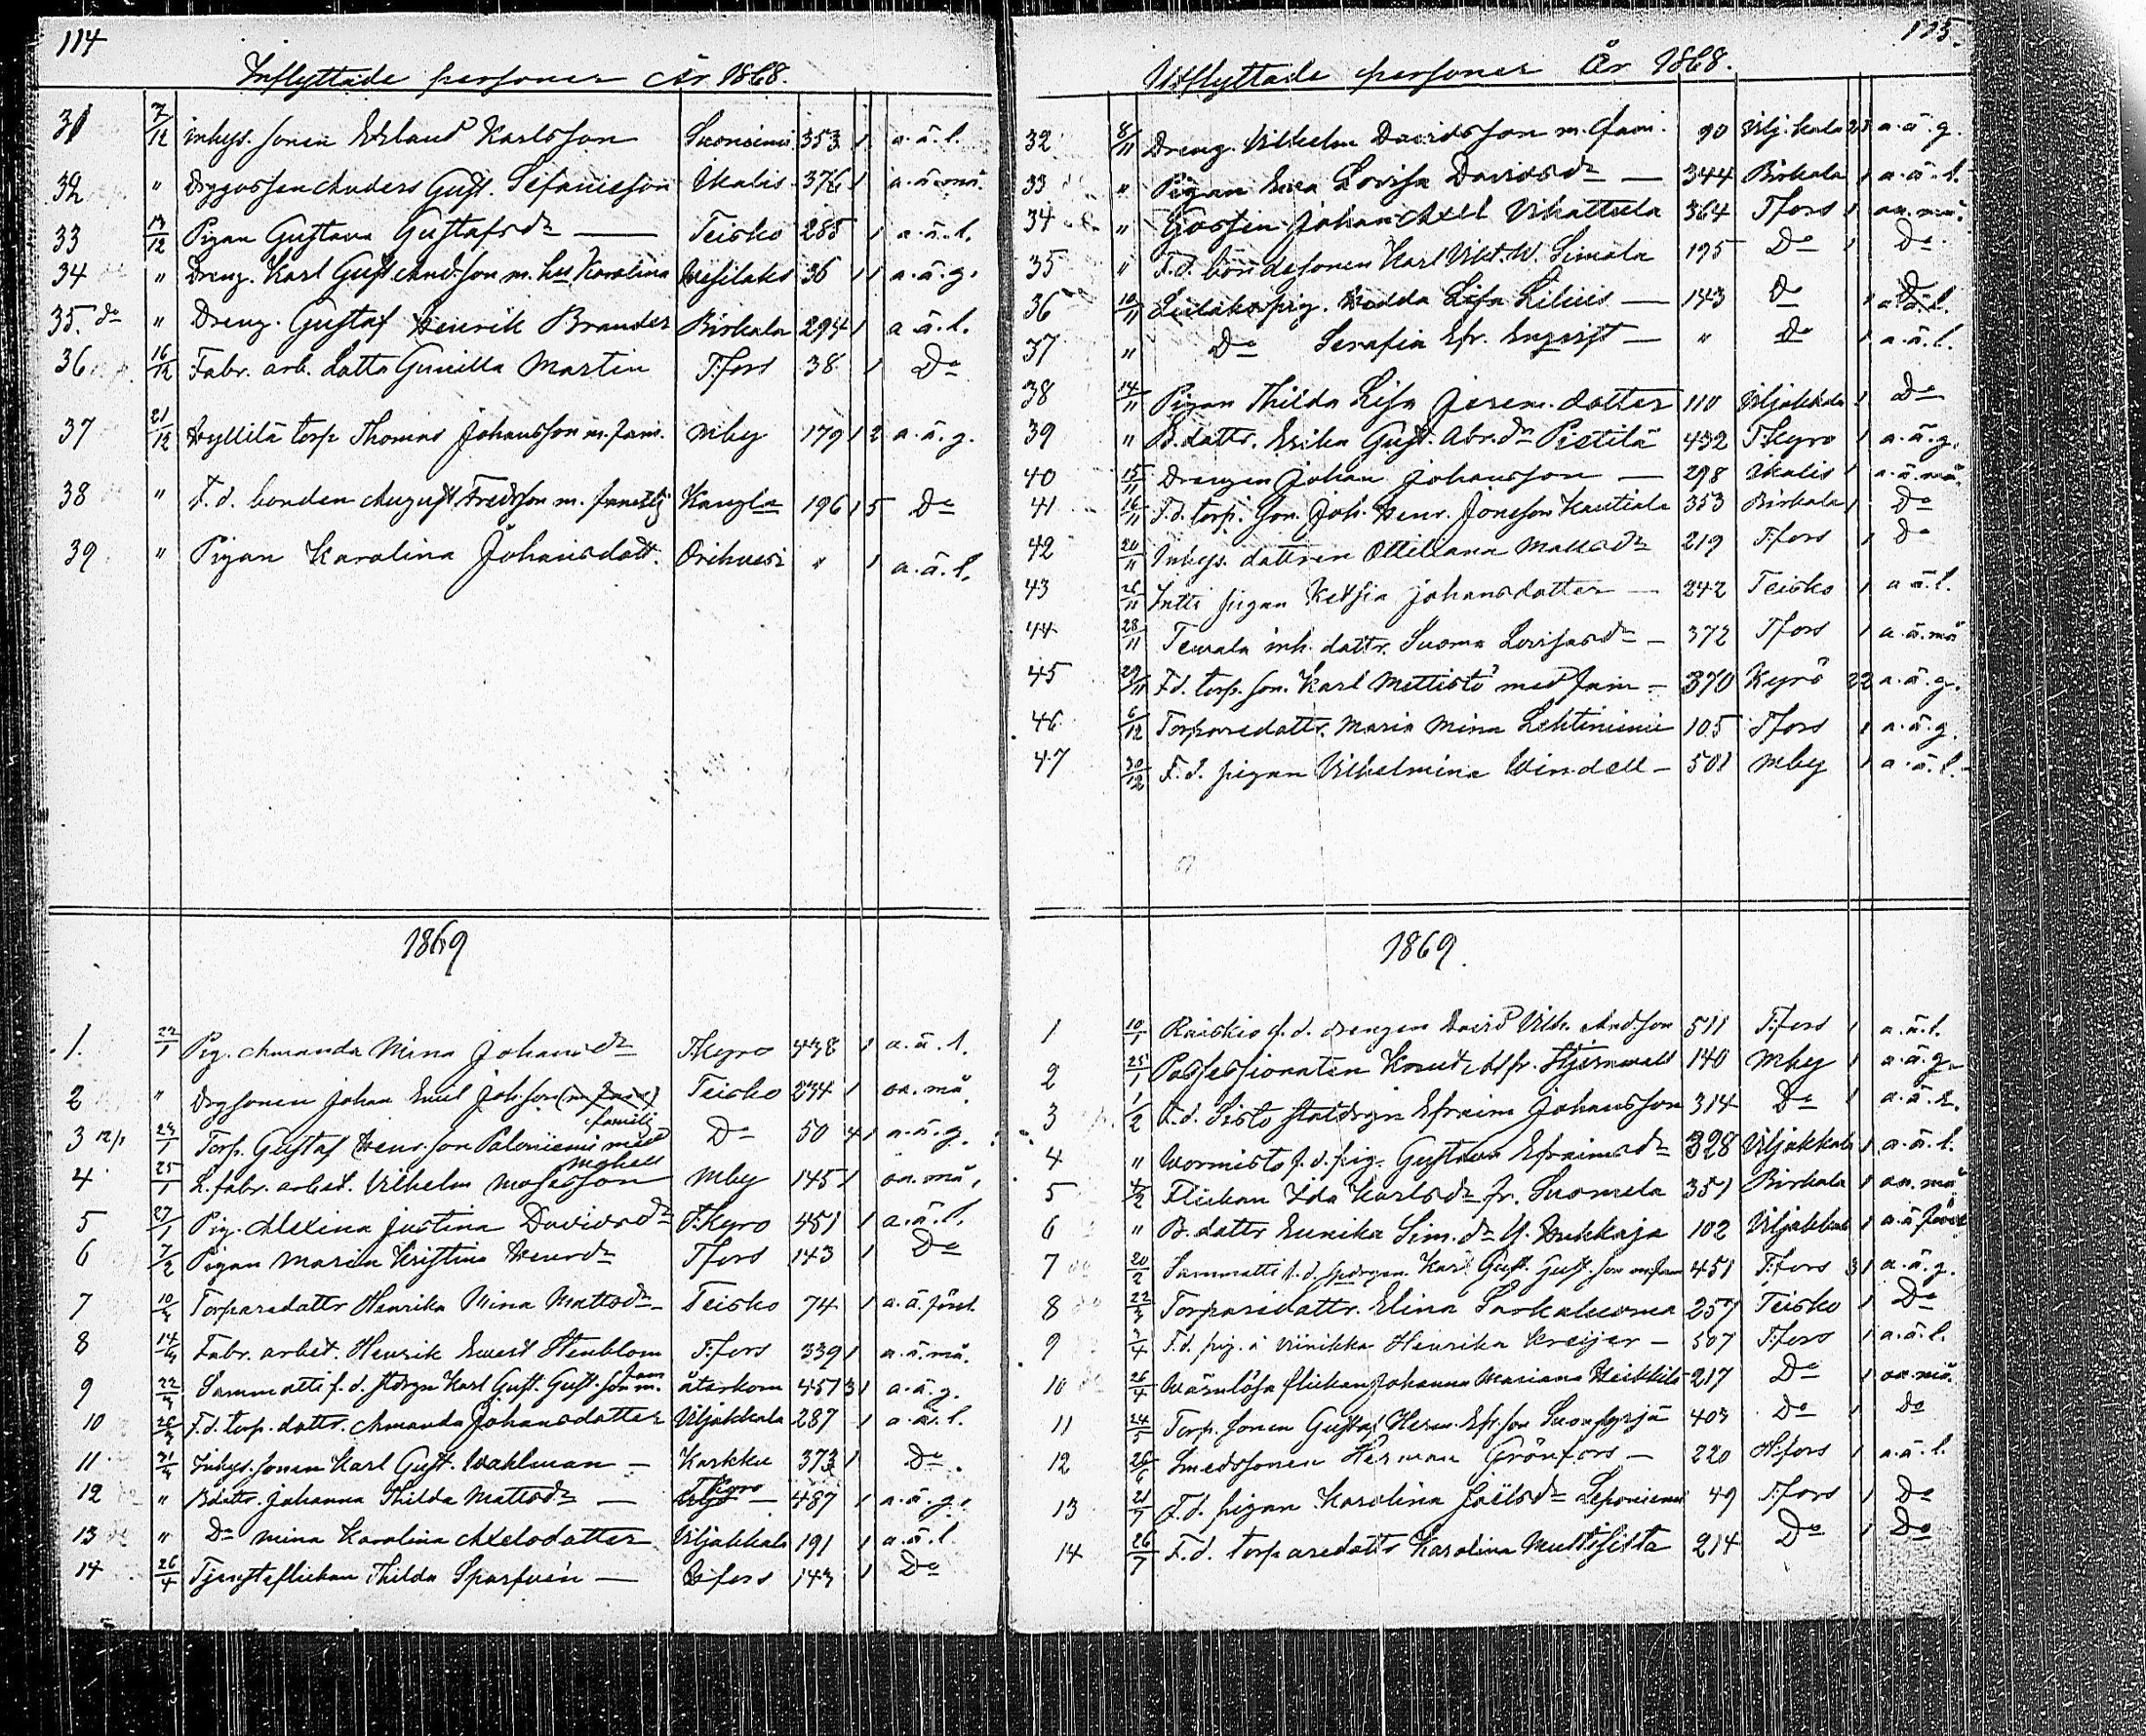 114
Inflyttade personer År 1868.
31 7/12 inhys. sonen Erland Karlsson Suoniemi 353 1 a.ä.l.
32 " Anders Gust. Sefaniesson Ikalis 376 1
33 /12 Pigan Gustava Gustafsdr — Teisko 285 1 a.ä.l.
34 " Dreng. Karl Gust And.son m. hu Karolina Vesilaks 36 1 1 a.ä.g.
35. do " Dreng. Gustaf Henrik Brander Birkala 294 1 a.ä.l.
36 16/12 Fabr. arb. Lotta Gunilla Martin T:fors 38 1 Do
37 21/12 Hyllilä torp Thomas Johansson m. fam. Mby 179 1 2 a.ä.g.
38 " F.d. bonden August Fredsson m. familj 196 1 5 Do
39 " Pigan Karolina Johansdott. Orihvesi " 1 a.ä.l.
1869
1. 22/1 Pig. Amanda Mina Johansdr T.kyro 438 1 a.ä.l.
2 " Johan Emil Joh.son Teisko 234 1 oa. må.
familj
3 23/1 Torp. Gustaf Henr.son Paloniemi med Do 50 4 1 a.ä.g.
4 25/1 L. fabr. arbet. Vilhelm Mosesson Mby 145 1 oa. må.
5 27/1 Pig. Alexina Justina Davidsdr T.kyro 451 1 a.ä.l.
6 7/2 Pigan Maria Kristina Henrdr Tfors 143 1 Do
7 10/3 Torparedottr Henrika Mina Mattsdr Teisko 74 1 a.ä.först.
8 14/3 Fabr. arbet. Henrik Evert Stenblom T:fors 339 1 a.ä.må.
fam
9 22/3 Sammatti f.d. stdrgn Karl Gust. Gust.son m. återkom 451 3 1 a.ä.g.
10 26/3 F.d. torp. dottr. Amanda Johansdotter Viljakkala 287 1 a.ä.l.
11 31/3 Inhys. sonen Karl Gust. Wahlman — Karkku 373 1 Do
12 " Bdottr. Johanna Thilda Mattsdr — Kyro 487 1 a.ä.g.
13 " Do Mina Karolina Axelsdotter Viljakkala 191 1 a.ä.l
14 26/4 Tjensteflickan Thilda Sparfvén — 143 1 Do
115.
Utflyttade personer År 1868.
32 8/11 Dreng. Vilhelm Davidsson m. fam. 90 Vilj.kala 2 3 a.ä.g.
33 " Pigan Eva Lovisa Davidsdr — 344 Birkala 1 a.ä.l.
34 " Gossen Johan Axel Vihattula 364 Tfors 1 oa. må.
35 " F.d. bondesonen Karl Vikt. W. Simola 195 Do 1 Do
36 10/11 Hedda Lisa Lilius — 143 Do "
37 " Do Serafia Efr. Enqvist — " Do 1 a.ä.l.
38 14/11 Pigan Thilda Lisa Jerem.dotter 110 Viljakkala 1 Do
39 " B.dottr. Erika Gust. Abr.dr Pietilä 432 T.kyro 1 a.ä.g.
40 15/11 Drengen Johan Johansson — 298 Ikalis 1 a.ä.må.
41 16/11 F.d. torp. son. Joh. Henr. Jonsson Kautiala 353 Birkala 1 Do
42 20/11 Inhys. dottren Ottiliana Mattsdr 219 T:fors 1 Do
43 26/11 pigan Ketsia Johansdotter — 242 Teisko 1 a.ä.l.
44 28/11 Tevala inh. dottr. Suoma Lovisasdr — 372 Tfors 1 a.ä.må
45 29/11 F.d. torp. son. Karl Mettistö med fam — 370 Kyrö 2 2 a.ä.g.
46 6/12 Torparedottr. Maria Mina Lehtiniemi 105 Tfors 1 a.ä.g.
47 30/12 F.d. pigan Vilhelmina Windell — 501 Mby 1 a.ä.l.
1869.
1 10/1 Raiskio f.d. drengen David Vilh. And.son 511 T:fors 1 a.ä.l.
2 25/1 Possessionaten Knut Alfr. Stjernvall 140 Mby 1 a.ä.g.
3 1/2 F.d. Sisto statdrgn Efraim Johansson 314 Do 1
4 " Wormisto f.d. pig. Gustava Efraimsdr 328 Viljakkala 1 a.ä.l.
5 4/2 Flickan Ida Karlsdr fr. Suomela 351 Birkala 1 oa. må
6 " B.dottr Eunika Sim.dr Y. Hukkaja 102 Viljakkala 1
7 20/2 Sammatti f.d. Karl Gust. Gust.son m.fam 451 T:fors 3 1 a.ä.g.
8 22/3 Torparedottr. Elina Sarkaluoma 257 Teisko 1 Do
9 3/4 F.d. pig. å Viinikka Henrika Kreijer — 507 T:fors 1 a.ä.l.
10 26/4 Wärnlösa flickan Johanna Mariana Heikkilä 217 Do 1 oa. må.
11 24/5 Torp. sonen Gustaf Herm. Efr.son 403 Do 1 Do
12 26/6 Smedssonen Herman Grönfors — 220 H:fors 1 a.ä.l.
13 21/7 F.d. pigan Karolina Joëlsdr Leponiemi 49 T:fors 1 Do
14 26/7 F.d. torparedottr Karolina Muttisilta 214 Do 1 Do